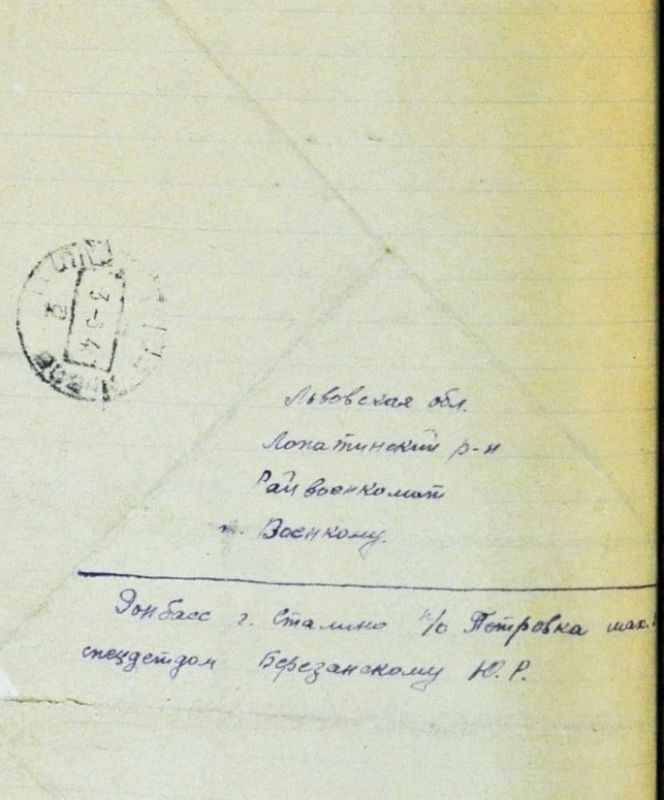 3-3-4
Львовская обл.
Лопатинский р-н
Райвоенкомат
т. Военкому.
Донбасс г. Сталино п/о Петровка шах.
спецдетдом Березанскому Ю.Р.